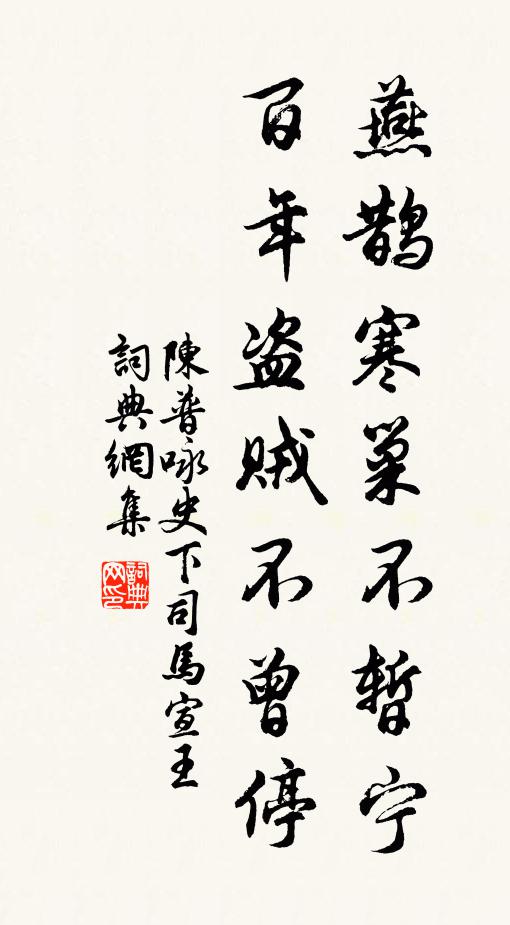 燕鵲寒巢不暫宁
百年盗贼不曾停
陳普咏史下司馬宣王
詞典網集
詞典网印